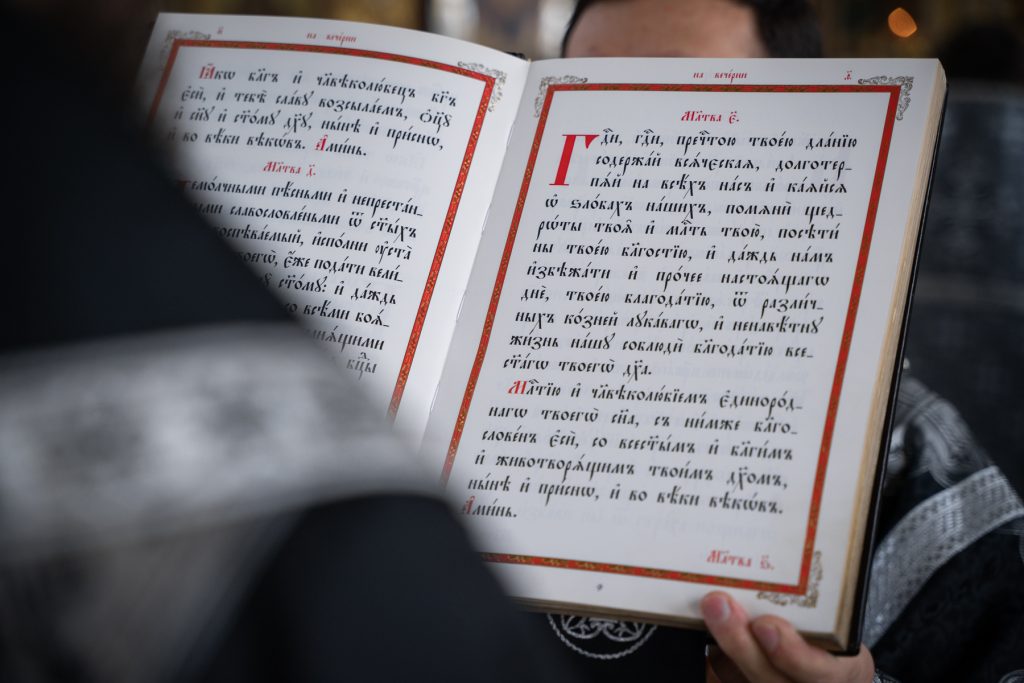 на вече́рни
Ꙗ҆́кѡ бл҃гъ и҆ чл҃вѣколю́бецъ бг҃ъ
є҆сѝ, и҆ тебѣ̀ сла́вꙋ возсыла́емъ, ѻ҆ц҃ꙋ̀
и҆ сн҃ꙋ и҆ ст҃о́мꙋ дх҃ꙋ, ны́нѣ и҆ при́снѡ,
и҆ во вѣ́ки вѣкѡ́въ. А҆ми́нь.
Мл҃тва д҃.
немо́лчными пѣ́сньми и҆ непреста́н-
ными славословле́ньми ѿ ст҃ы́хъ
воспѣва́емый, и҆спо́лни ᲂу҆ста̀
є҆́же пода́ти вели́-
ст҃о́мꙋ: и҆ да́ждь
со всѣ́ми боѧ́-
бц҃ы
на вече́рни
Мл҃тва є҃.
Гдⷭ҇и, гдⷭ҇и, пречⷭ҇тою твоє́ю дла́нїю
содержа́й всѧ́чєскаѧ, долготер-
пѧ́й на всѣ́хъ на́съ и҆ ка́ѧйсѧ
ѡ҆ ѕло́бахъ на́шихъ, помѧнѝ щед-
рѡ́ты твоѧ̑ и҆ млⷭ҇ть твою̀, посѣтѝ
ны̀ твоє́ю бл҃гостїю, и҆ да́ждь на́мъ
и҆збѣжа́ти и҆ про́чее настоѧ́щагѡ
днѐ, твоє́ю благода́тїю, ѿ разли́ч-
ныхъ ко́зней лꙋка́вагѡ, и҆ ненавѣ́тнꙋ
жи́знь на́шꙋ соблюдѝ бл҃года́тїю все-
ст҃а́гѡ твоегѡ̀ дх҃а.
Млⷭ҇тїю и҆ чл҃вѣколю́бїемъ є҆диноро́д-
нагѡ твоегѡ̀ сн҃а, съ ни́мже бл҃го-
слове́нъ є҆сѝ, со всест҃ы́мъ и҆ бл҃ги́мъ
и҆ животворѧ́щимъ твои́мъ дх҃омъ,
ны́нѣ и҆ при́снѡ, и҆ во вѣ́ки вѣкѡ́въ.
А҆ми́нь.
Мл҃тва ѕ҃.